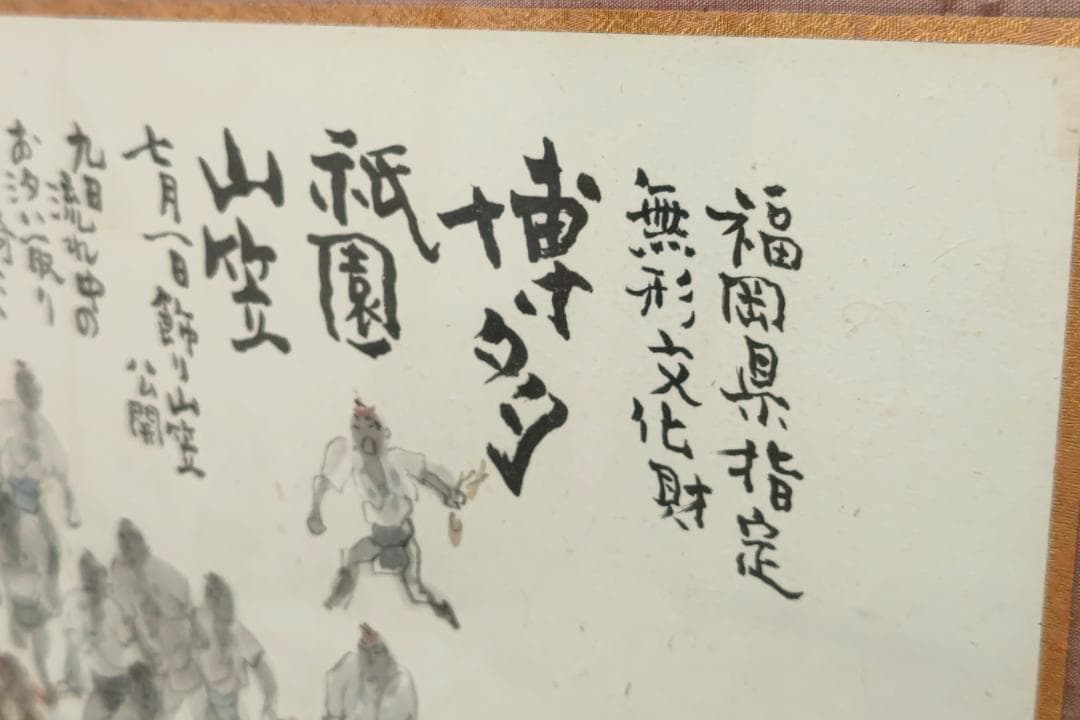 福岡県指定
無形文化財
博多
祇園
山笠
七月一日飾り山笠
公開
九日
流れ
お汐い取り